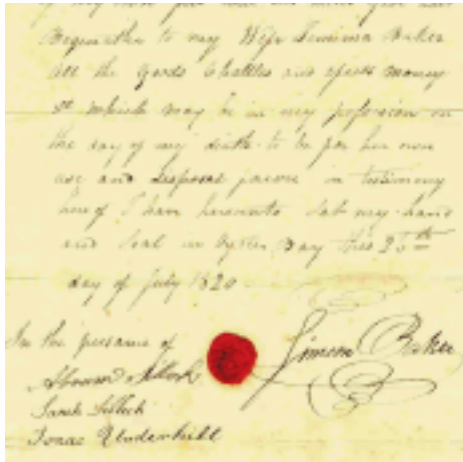 Bequeathe to my Wife Jemima Baker
All the Goods Chattles and money
which may be in my possession on
the day of my death to be for her own
use and disposal in testimony
I have hereunto Set my hand
and Seal in Oyster Bay this 25th
day of July 1820
In the presance of
Simeon Baker
Sarah
Jonas Underhill